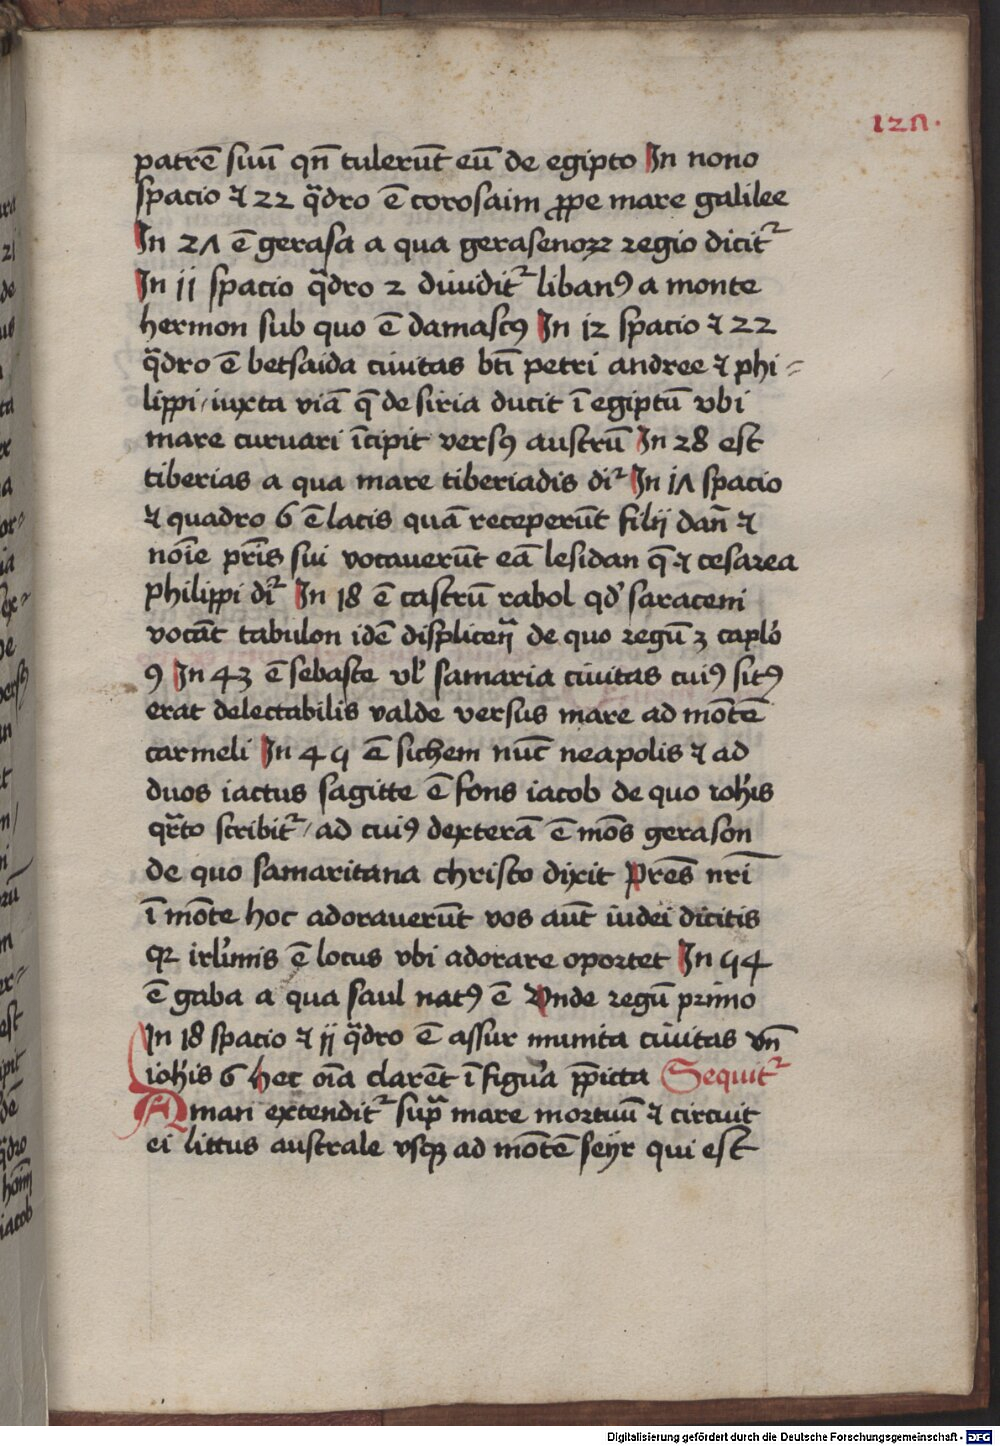 127.
patrē suū qn̄ tulerūt eū de egipto In nono
spacio ⁊ 22 q̄dro ē corosaim ꝓpe mare galilee
In 27 ē gerasa a qua gerasenoꝝ regio dicit᷑
In ij spacio q̄dro 2 diuidit᷑ libanꝰ a monte
hermon sub quo ē damascꝰ In 12 spacio ⁊ 22
q̄dro ē betsaida ciuitas bt̄i petri andree ⁊ phi-
lippi / iuxta viā q̄ de siria ducit ī egiptū vbi
mare curuari īcipit versꝰ austrū In 28 est
tiberias a qua mare tiberiadis di᷑ In 17 spacio
⁊ quadro 6 ē lacis quā receperūt filij dan̄ ⁊
noīe pr̄is sui vocauerūt eā lesidan q̄ ⁊ cesarea
philippi di᷑ In 18 ē castrū rabol qd̕ saraceni
vocāt tabulon idē displiceñ de quo regū 3 caplo̕
9 In 43 ē sebaste vl̕ samaria ciuitas cuiꝰ sitꝰ
erat delectabilis valde versus mare ad mōtē
carmeli In 45 ē sichem nūc neapolis ⁊ ad
duos iactus sagitte ē fons iacob de quo ioh̕is
qrto scribit᷑ / ad cuiꝰ dexterā ē mōs gerason
de quo samaritana christo dixit Pr̄es nr̄i
ī mōte hoc adorauerūt vos aūt iudei dicitis
qꝛ irl̕imis ē locus vbi adorare oportet In 54
ē gaba a qua saul natꝰ ē Vnde regū primo
In 18 spacio ⁊ ij q̄dro ē assur munita ciuitas vn̄
ioh̕is 6 hec oīa clarēt ī figu̕a p̄picta Sequit᷑
Aman extendit᷑ sup̄ mare mortuū ⁊ circuit
ei littus australe vsqꝫ ad mōtē seyr qui est
Digitalisierung gefördert durch die Deutsche Forschungsgemeinschaft - DFG